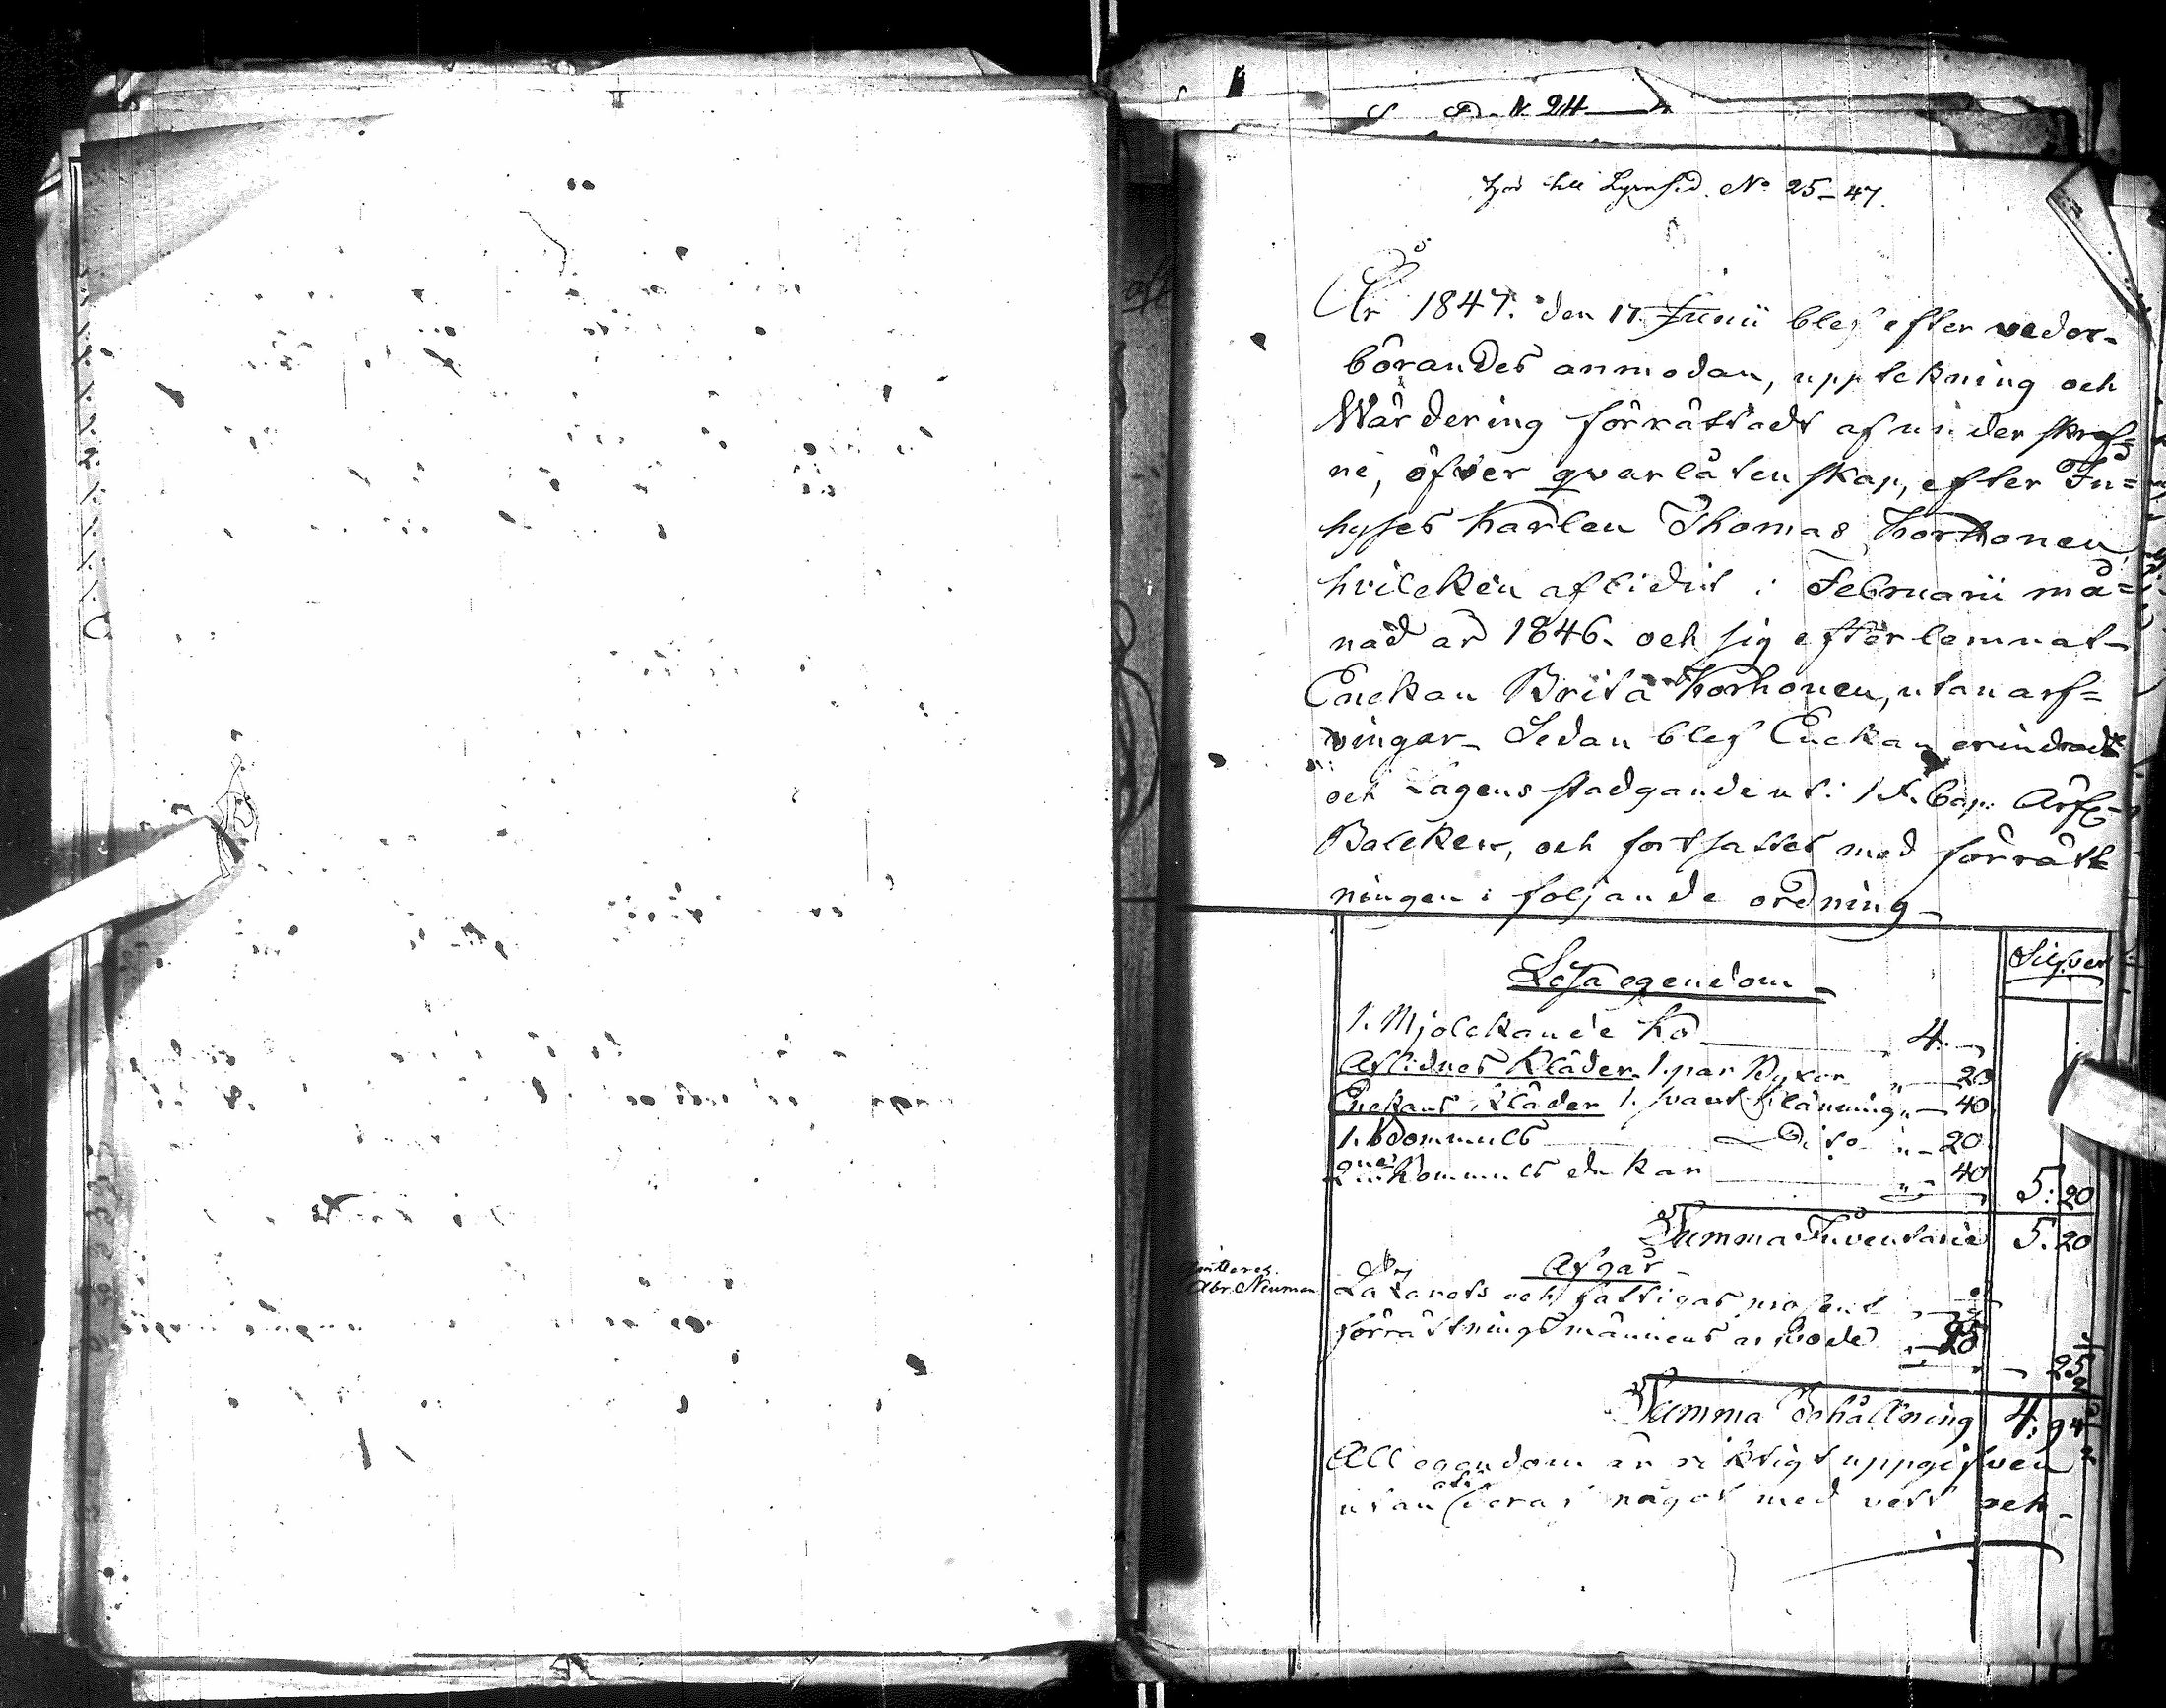 N. 24
till No 25-47.
År 1847. den 17. Junii blef efter veder-
börandes anmodan, uppteckning och
Wärdering förrättadt af under skref=
ne, öfver qvarlåtenskap, efter In=
hyses karlen Thomas Korhonen,
hvilcken aflidit i Februarii må=
nad år 1846. och sig efterlemnat-
Enckan Brita Korhonen, utan arf=
vingar- Sedan blef Enckan erindrad
och Lagens stadgande ut: Cap: Ärfe-
Balcken, och fortsattes med förrätt
ningen i följande ordning-
Silfver
Lösa egendom-
1. Mjolckande Ko 4.-
Aflidnes Kläder. 1. par Byxor " - 20
Enckans Kläder 1. svart klänning " - 40
1. Wommuls Dito " - 20
2ne kommuls 40 5: 20
Summa Inventarie 5. 20
Qvitteras.
Abr. Neuman
Afgår-
Lazarets och fattigas prosent
förrättnings männens arfvode - 20
- 25
Summa Behållning 4: 94
All egendom är riktigt uppgifven
utan att något med vett och-